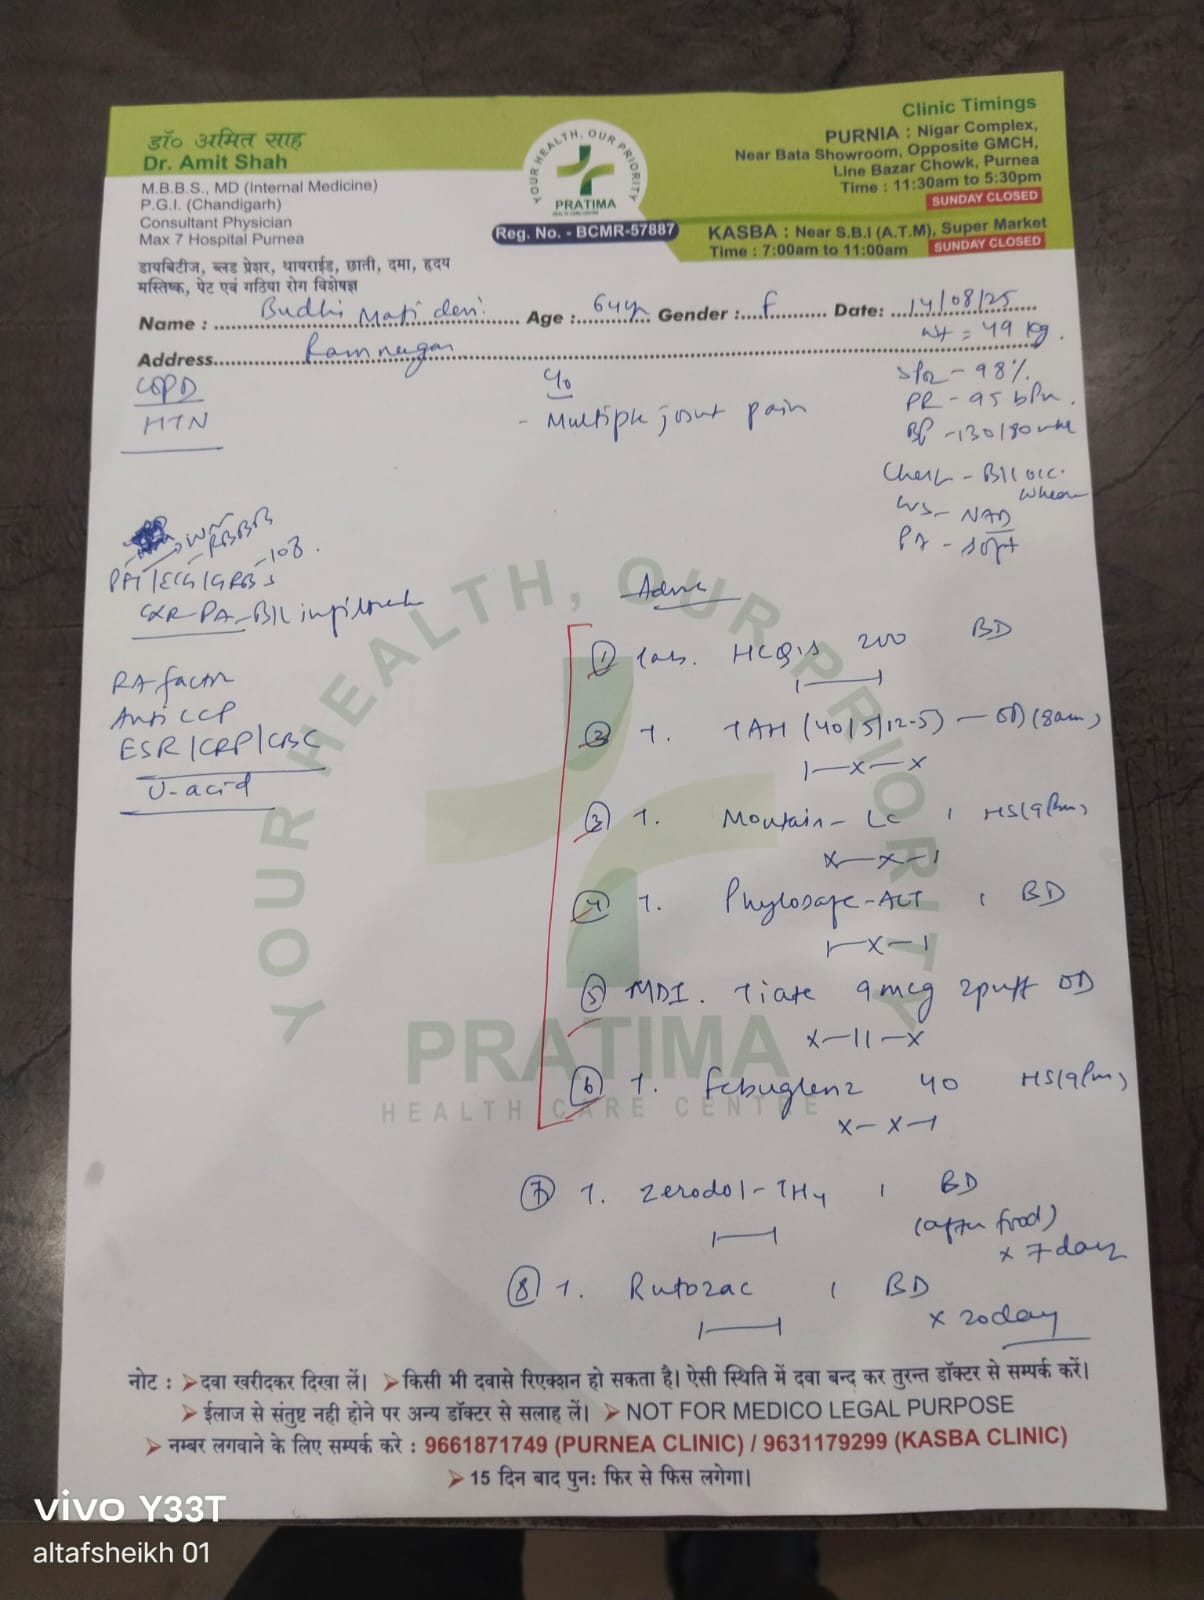 डॉ० अमित साह
Dr. Amit Shah
M.B.B.S., MD (Internal Medicine)
P.G.I. (Chandigarh)
Consultant Physician
Max 7 Hospital Purnea
डायबिटीज, ब्लड प्रेशर, थायराईड, छाती, दमा, हृदय
मस्तिष्क, पेट एवं गठिया रोग विशेषज्ञ
YOUR HEALTH, OUR PRIORITY
PRATIMA
HEALTH CARE CENTRE
Reg. No. - BCMR-57887
Clinic Timings
PURNIA : Nigar Complex,
Near Bata Showroom, Opposite GMCH,
Line Bazar Chowk, Purnea
Time : 11:30am to 5:30pm
SUNDAY CLOSED
KASBA : Near S.B.I (A.T.M), Super Market
Time : 7:00am to 11:00am SUNDAY CLOSED
Name : Budhi Mati devi Age : 64y Gender : F Date: 14/08/25
wt = 49 kg.
Address Ramnagar
COPD
HTN
c/o
- Multiple joint pain
SPO2 - 98%
PR - 95 bpm.
BP - 130/80
Chest - B/L occ.
NAD
PA - soft
RBBB
108
ECG/GRBS
CXR-PA-B/L
RA factor
Anti CCP
ESR/CRP/CBC
U-acid
YOUR HEALTH, OUR PRIORITY
PRATIMA
HEALTH CARE CENTRE
① Tab. HCQS 200 BD
② T. TAH (40/5/12.5) — OD (8am)
1—x—x
③ T. Montair-LC 1 HS(9pm)
x—x—1
④ T. Phylosafe-ACT 1 BD
1—x—1
⑤ MDI. Tiate 9mcg 2puff OD
x—11—x
⑥ T. Febuglenz 40 HS(9pm)
x—x—1
⑦ T. Zerodol-TH4 1 BD
(after food)
x 7 days
⑧ T. Rutozac 1 BD
x 20 day
नोट : ➢ दवा खरीदकर दिखा लें। ➢ किसी भी दवासे रिएक्शन हो सकता है। ऐसी स्थिति में दवा बन्द कर तुरन्त डॉक्टर से सम्पर्क करें।
➢ ईलाज से संतुष्ट नही होने पर अन्य डॉक्टर से सलाह लें। ➢ NOT FOR MEDICO LEGAL PURPOSE
➢ नम्बर लगवाने के लिए सम्पर्क करे : 9661871749 (PURNEA CLINIC) / 9631179299 (KASBA CLINIC)
➢ 15 दिन बाद पुनः फिर से फिस लगेगा।
vivo Y33T
altafsheikh 01